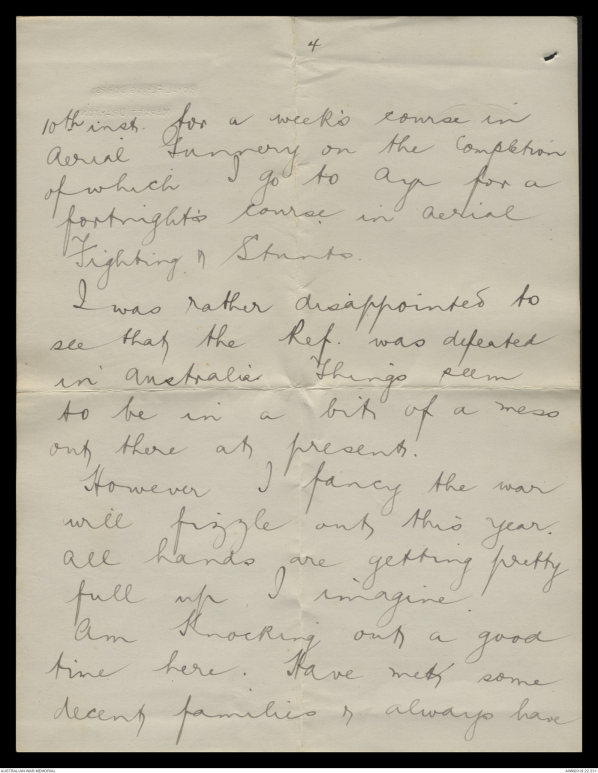 4
10th inst. for a week's course in
Aerial Gunnery on the Completion
of which I go to Ayr for a
fortnight's course in aerial
Fighting & Stunts.
I was rather disappointed to
see that the Ref. was defeated
in Australia. Things seem
to be in a bit of a mess
out there at present.
However I fancy the war
will fizzle out this year.
All hands are getting pretty
full up I imagine.
Am Knocking out a good
time here. Have met some
decent families & always have
AUSTRALIAN WAR MEMORIAL